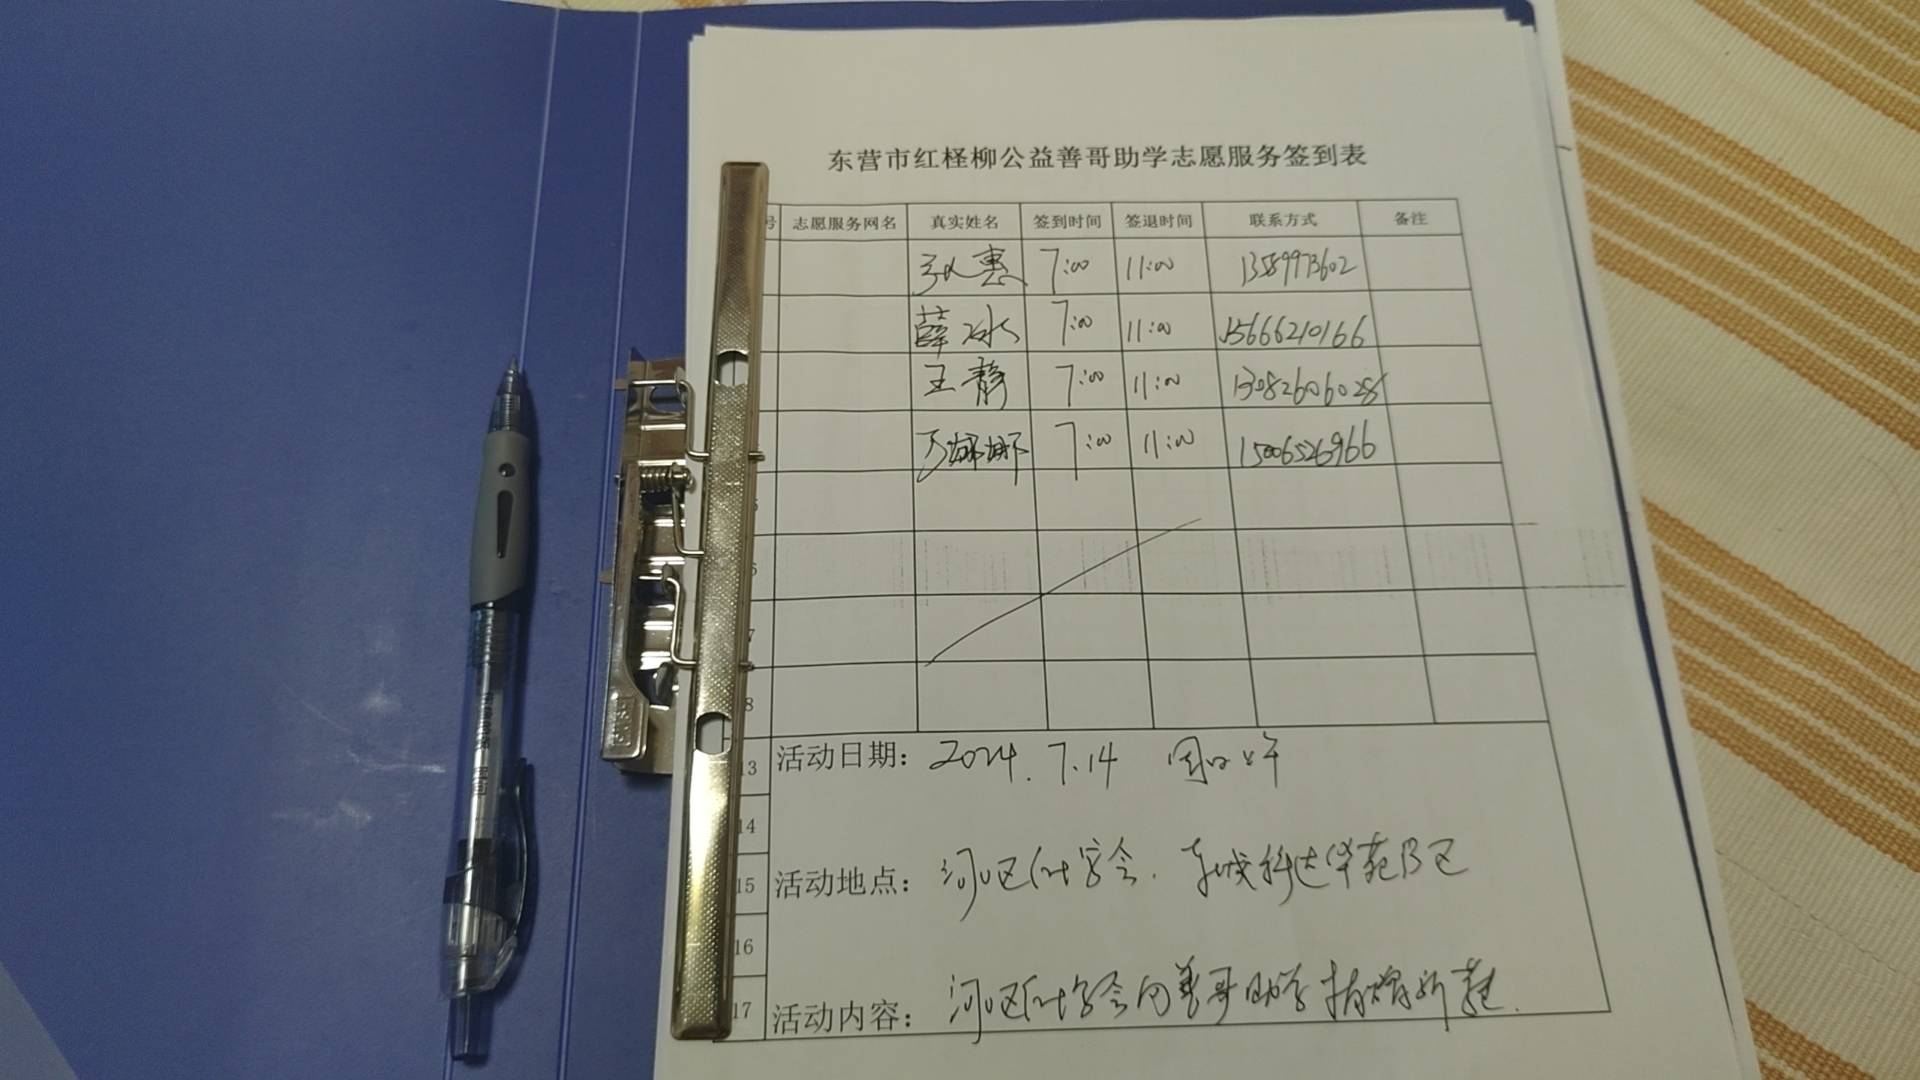 东营市红柽柳公益善哥助学志愿服务签到表
号 志愿服务网名 真实姓名 签到时间 签退时间 联系方式 备注
张惠 7:00 11:00 13589973602
薛冰 7:00 11:00 15666210166
王静 7:00 11:00 13082606028
万娜娜 7:00 11:00 15006526966
6
7
8
13 活动日期: 2024.7.14 周日上午
14
15 活动地点: 河口区 学会. 东城科达华苑B区
16
17 活动内容: 河口区 学会向善哥助学捐赠新鞋.